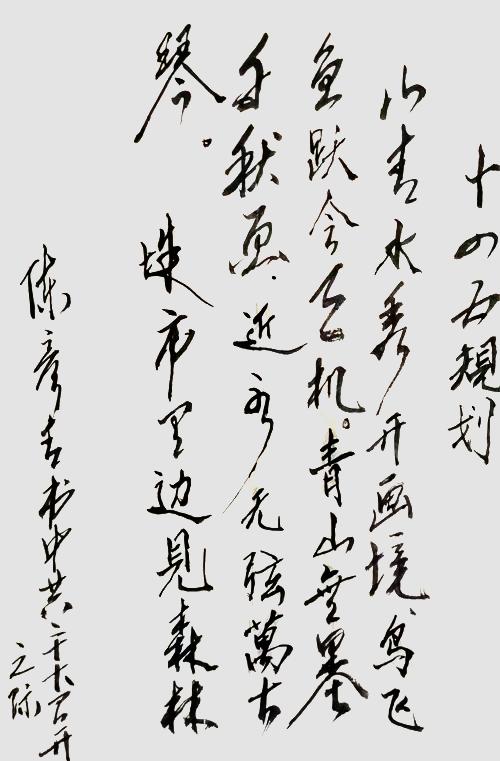 十四五規划
山青水秀开画境、鸟飞
鱼跃天机。青山無墨
千秋画.近水无弦萬古
琴。城市里边見森林
陈彦青书中共二十大召开
之际